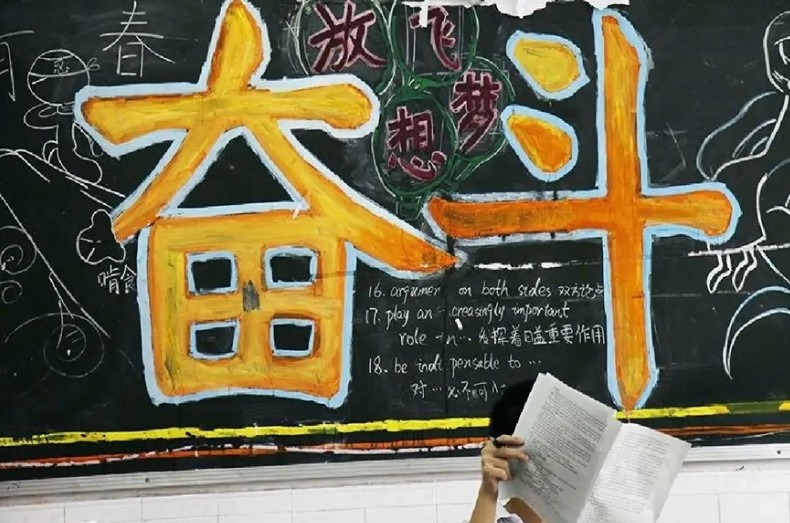 春
放飞
梦
想
奋斗
啃食
16. argumen on both sides 双方论点
17. play an creasingly important
role n... 发挥着日益重要作用
18. be indi pensable to ...
对 ... 不可